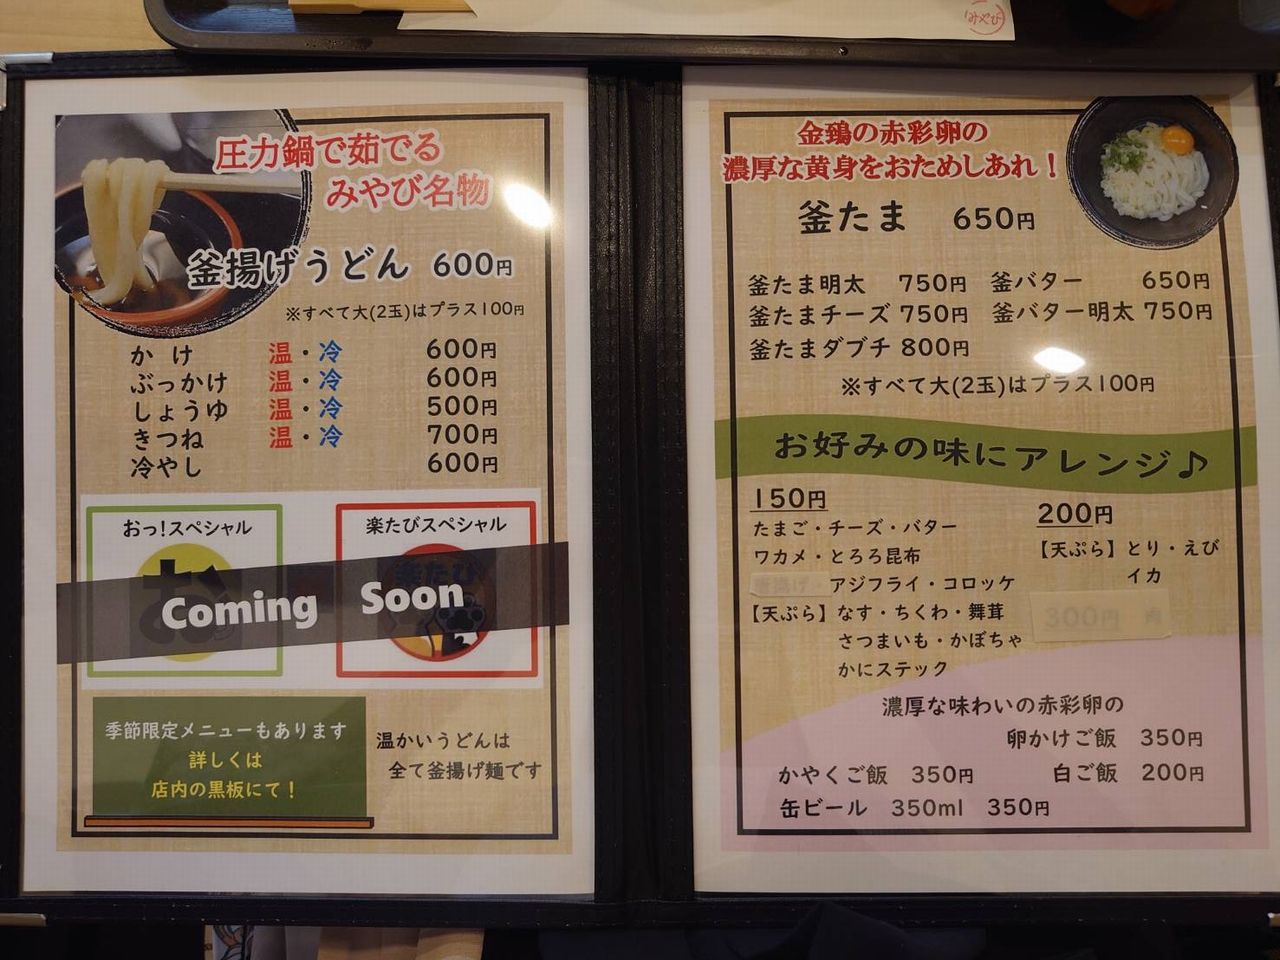 みやび
圧力鍋で茹でる
みやび名物
釜揚げうどん 600円
※すべて大(2玉)はプラス100円
かけ 温・冷 600円
ぶっかけ 温・冷 600円
しょうゆ 温・冷 500円
きつね 温・冷 700円
冷やし 600円
おっ!スペシャル
楽たびスペシャル
お
楽たび
Coming Soon
季節限定メニューもあります
詳しくは
店内の黒板にて!
温かいうどんは
全て釜揚げ麺です
金鶏の赤彩卵の
濃厚な黄身をおためしあれ!
釜たま 650円
釜たま明太 750円 釜バター 650円
釜たまチーズ 750円 釜バター明太 750円
釜たまダブチ 800円
※すべて大(2玉)はプラス100円
お好みの味にアレンジ♪
150円
たまご・チーズ・バター
ワカメ・とろろ昆布
唐揚げ・アジフライ・コロッケ
【天ぷら】なす・ちくわ・舞茸
さつまいも・かぼちゃ
かにステック
200円
【天ぷら】とり・えび
イカ
300円 肉
濃厚な味わいの赤彩卵の
卵かけご飯 350円
かやくご飯 350円 白ご飯 200円
缶ビール 350ml 350円